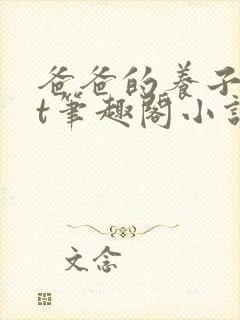 爸爸的養子
t筆趣閣小說
文念